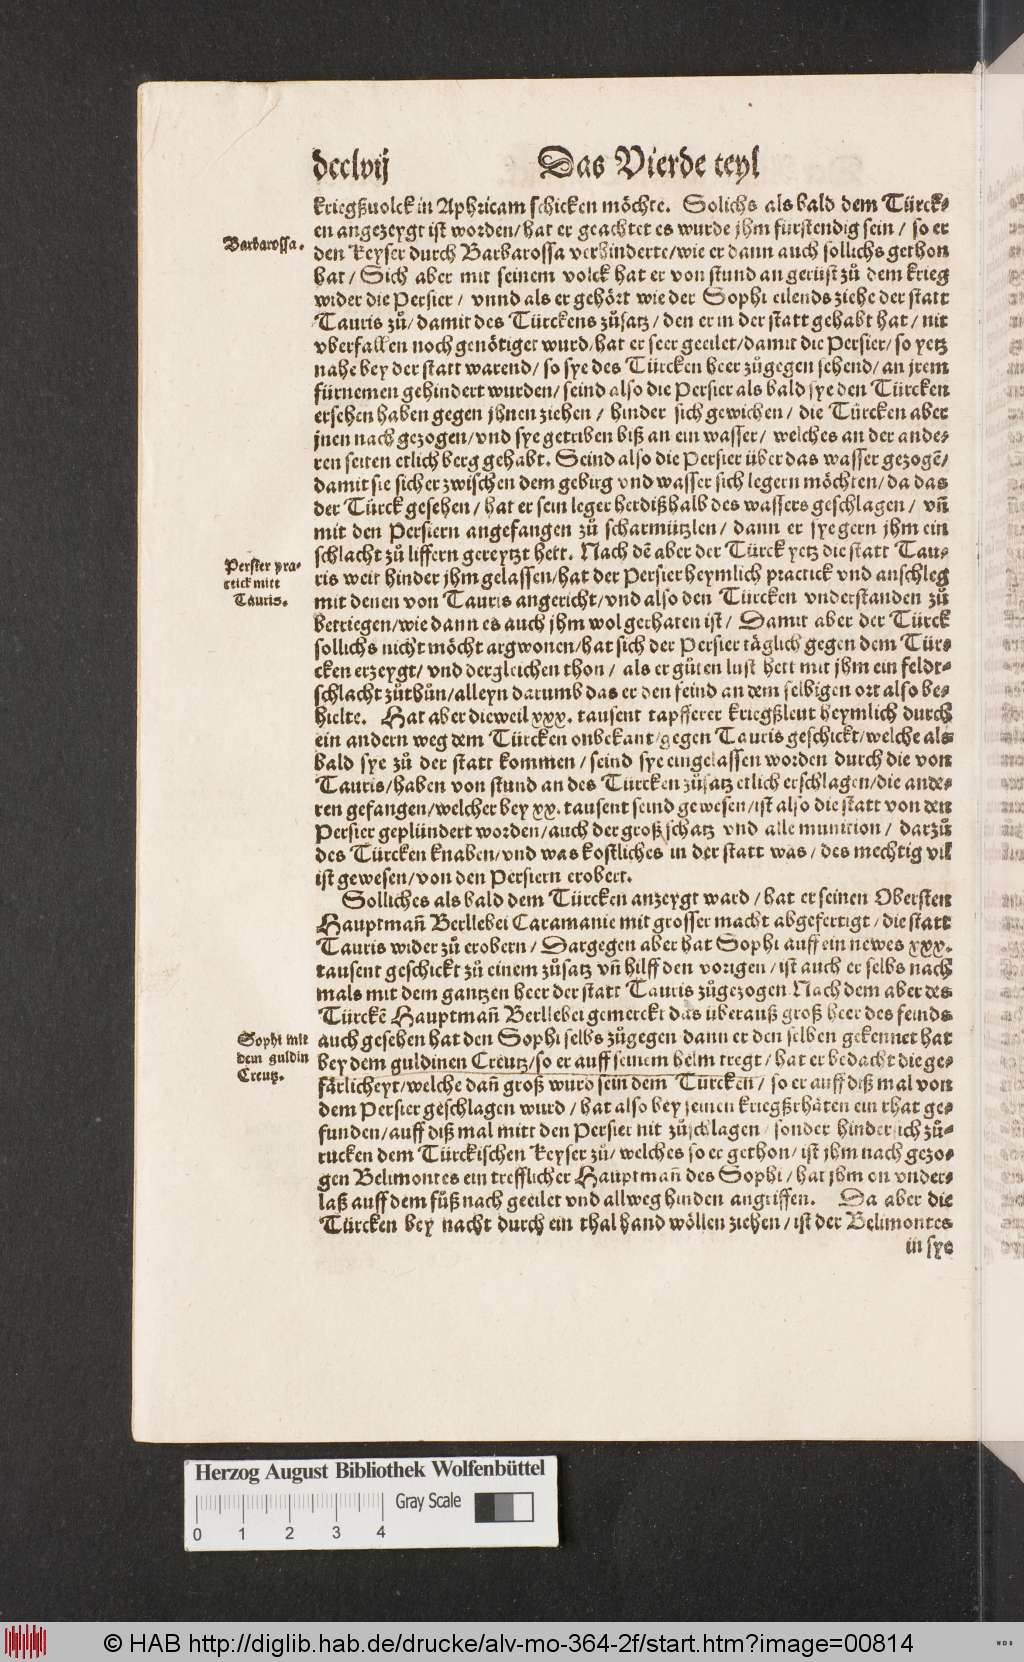 dcclvij Das Vierde teyl
kriegßuolck in Aphricam schicken möchte. Solichs als bald dem Türck⸗
en angezeygt ist worden/ hat er geachtet es wurde jhm fürstendig sein / so er
Barbarossa.
den Keyser durch Barbarossa verhinderte/wie er dann auch sollichs gethon
hat / Sich aber mit seinem volck hat er von stund an gerüst zů dem krieg
wider die Persier / vnnd als er gehört wie der Sophi eilends ziehe der statt
Tauris zů/ damit des Türckens zůsatz / den er in der statt gehabt hat / nit
vberfallen noch genötiget wurd/hat er seer geeilet/damit die Persier/ so yetz
nahe bey der statt warend/ so sye des Türcken heer zůgegen sehend/ an jrem
fürnemen gehindert wurden/ seind also die Persier als bald sye den Türcken
ersehen haben gegen jhnen ziehen / hinder sich gewichen / die Türcken aber
jnen nach gezogen/vnd sye getriben biß an ein wasser/ welches an der ande⸗
ren seiten etlich berg gehabt. Seind also die Persier über das wasser gezogẽ/
damit sie sicher zwischen dem gebirg vnd wasser sich legern möchten/ da das
der Türck gesehen / hat er sein leger herdißhalb des wassers geschlagen / vñ
mit den Persiern angefangen zů scharmützlen / dann er sye gern jhm ein
schlacht zů liffern gereytzt hett. Nach dẽ aber der Türck yetz die statt Tau⸗
Persier pra⸗
ctick mitt
Tauris.
ris weit hinder jhm gelassen/hat der Persier heymlich practick vnd anschleg
mit denen von Tauris angericht/vnd also den Türcken vnderstanden zů
betriegen/wie dann es auch jhm wol gerhaten ist / Damit aber der Türck
sollichs nicht möcht argwonen/hat sich der Persier täglich gegen dem Tür⸗
cken erzeygt/ vnd dergleichen thon / als er gůten lust hett mit jhm ein feldt⸗
schlacht zůthůn/alleyn darumb das er den feind an dem selbigen ort also be⸗
hielte. Hat aber dieweil xxx. tausent tapfferer kriegßleut heymlich durch
ein andern weg dem Türcken onbekant/gegen Tauris geschickt/welche als
bald sye zů der statt kommen / seind sye eingelassen worden durch die von
Tauris/haben von stund an des Türcken zůsatz etlich erschlagen/die ande⸗
ren gefangen/welcher bey xx. tausent seind gewesen/ist also die statt von den
Persier geplündert worden/auch der groß schatz vnd alle munition / darzů
des Türcken knaben/vnd was kostliches in der statt was / des mechtig vil
ist gewesen/von den Persiern erobert.
Solliches als bald dem Türcken anzeygt ward / hat er seinen Obersten
Hauptmañ Berllebei Caramanie mit grosser macht abgefertigt / die statt
Tauris wider zů erobern / Dargegen aber hat Sophi auff ein newes xxx.
tausent geschickt zů einem zůsatz vñ hilff den vorigen / ist auch er selbs nach
mals mit dem gantzen heer der statt Tauris zůgezogen Nach dem aber des
Türckẽ Hauptmañ Berllebei gemerckt das überauß groß heer des feinds
Sophi mit
dem guldin
Creutz.
auch gesehen hat den Sophi selbs zůgegen dann er den selben gekennet hat
bey dem guldinen Creutz/so er auff seinem helm tregt / hat er bedacht die ge⸗
färlicheyt/welche dañ groß wurd sein dem Türcken / so er auff diß mal von
dem Persier geschlagen wurd / hat also bey seinen kriegßrhäten ein rhat ge⸗
funden/auff diß mal mitt den Persier nit zůschlagen / sonder hindersich zů⸗
rucken dem Türckischen Keyser zů/ welches so er gethon/ ist jhm nach gezo⸗
gen Belimontes ein trefflicher Hauptmañ des Sophi / hat jhm on vnder⸗
laß auff dem fůß nach geeilet vnd allweg hinden angriffen. Da aber die
Türcken bey nacht durch ein thal hand wöllen ziehen / ist der Belimontes
in sye
Herzog August Bibliothek Wolfenbüttel
Gray Scale
0 1 2 3 4
© HAB http://diglib.hab.de/drucke/alv-mo-364-2f/start.htm?image=00814